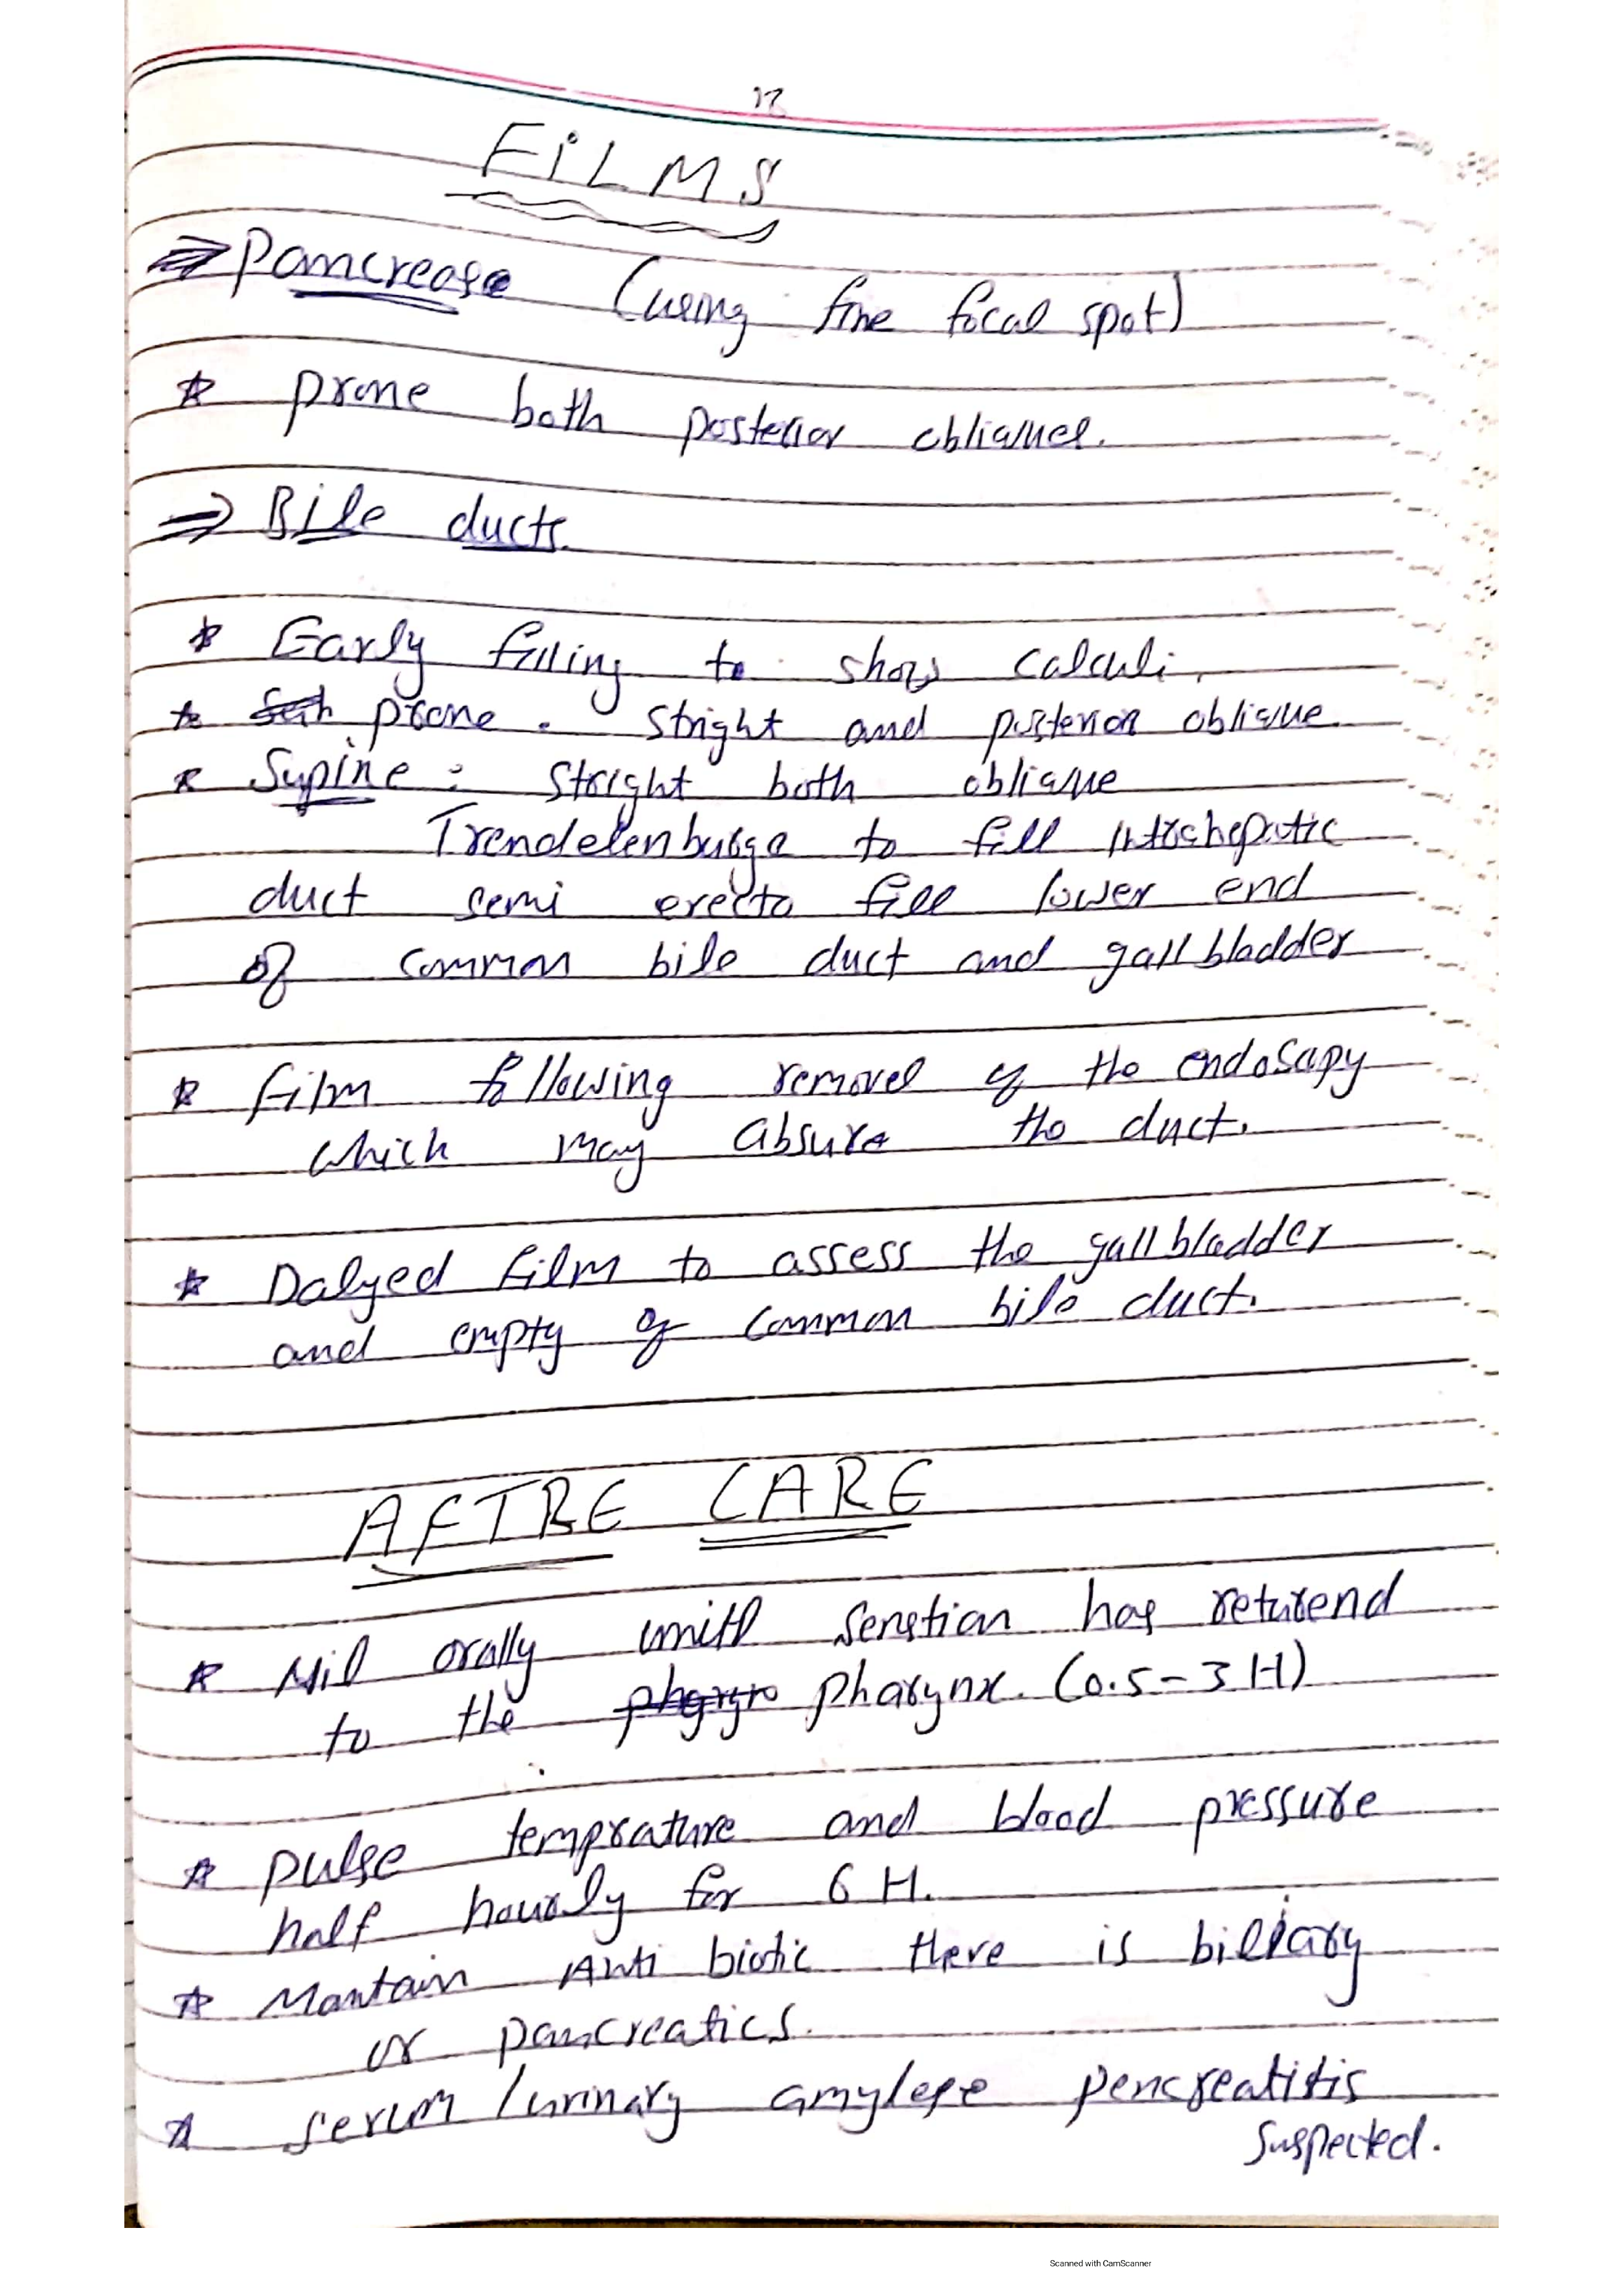 17
FiLMS
⇒ Pancrease (using fine focal spot)
* prone both posterior obliques.
⇒ Bile ducts.
* Early filling to show calculi,
* prone . stright and posterior oblique
* Supine : Stright both oblique
Trendelenburge to fill intrahepatic
duct semi erecto fill lower end
of common bile duct and gallbladder
* film following removel of the endosapy
which may absure the duct.
* Dalyed film to assess the gallbladder
and empty of common bile duct.
AFTRE CARE
* Nil orally until senstion has returend
to the pharynx. (0.5-3 H)
* pulse temprature and blood pressure
half hourly for 6 H.
* Mantain Anti biotic there is billiary
or pancreatics.
* serum / urinary amylese pencreatitis
suspected.
Scanned with CamScanner